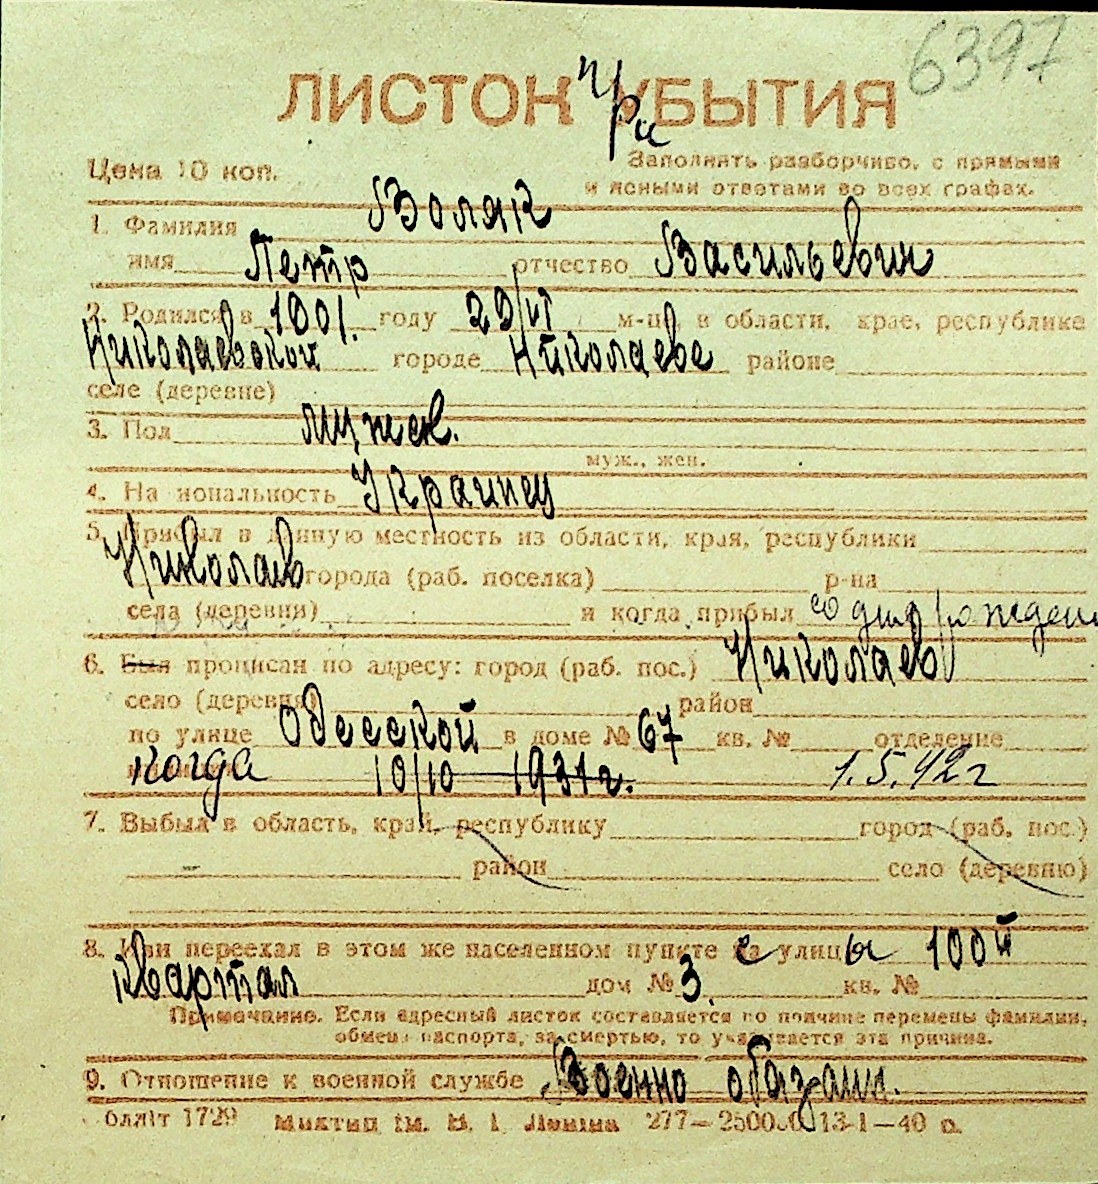 6397
ЛИСТОК при УБЫТИЯ
Цена 10 коп.
Заполнять разборчиво, с прямыми
и ясными ответами во всех графах.
1. Фамилия Воляк
имя Петр отчество Васильевич
2. Родился в 1901. году 29/VI м-ца, в области, крае, республике
Николаевской городе Николаеве районе
селе (деревне)
3. Пол мужск.
муж., жен.
4. Национальность Украинец
5. Прибыл в данную местность из области, края, республики
Николаев города (раб. поселка) р-на
села (деревни) и когда прибыл со дня рожден
6. Был прописан по адресу: город (раб. пос.) Николаев
село (деревня) район
по улице Одесской в доме № 67 кв. № отделение
когда 10/10 1931г. 1.5.42 г
7. Выбыл в область, край, республику город (раб. пос.)
район село (деревню)
8. Или переехал в этом же населенном пункте с улицы 100й
квартал дом № 3. кв. №
Примечание. Если адресный листок составляется по причине перемены фамилии,
обмена паспорта, за смертью, то указывается эта причина.
9. Отношение к военной службе Военно обязан.
Обллiт 1729 Миктип iм. В. I. Ленiна 277—250000 13-1—40 р.